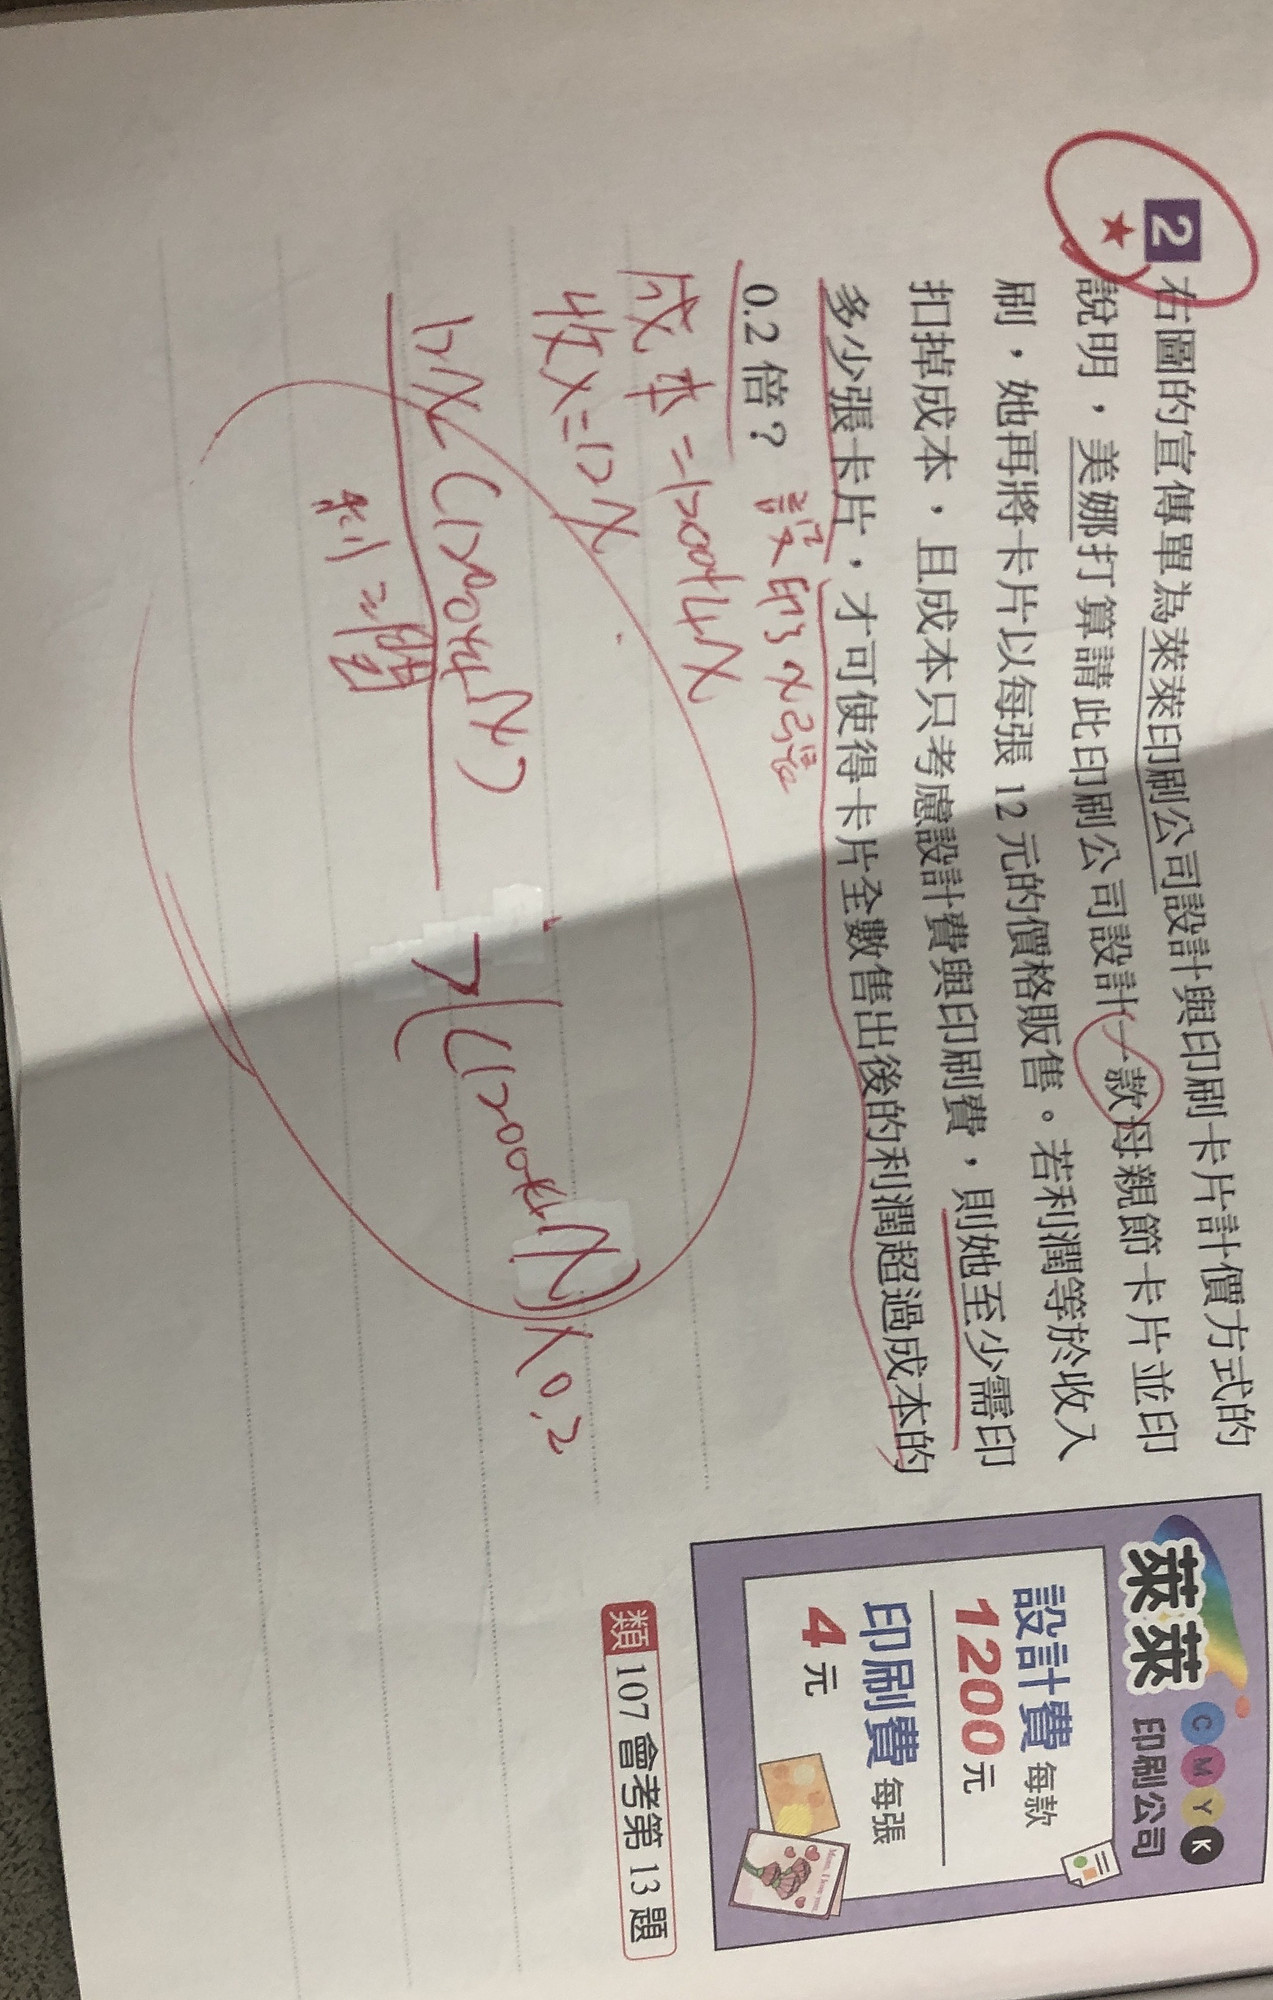 2 右圖的宣傳單為萊萊印刷公司設計與印刷卡片計價方式的
★ 說明，美娜打算請此印刷公司設計一款母親節卡片並印
刷，她再將卡片以每張 12 元的價格販售。若利潤等於收入
扣掉成本，且成本只考慮設計費與印刷費，則她至少需印
多少張卡片，才可使得卡片全數售出後的利潤超過成本的
0.2 倍？
設印了x張
成本=1200+4x
收入=12x
12x-(1200+4x) > (1200+4x)×0.2
利潤
萊萊 C M Y K
印刷公司
設計費 每款
1200元
印刷費 每張
4元
類 107 會考第 13 題